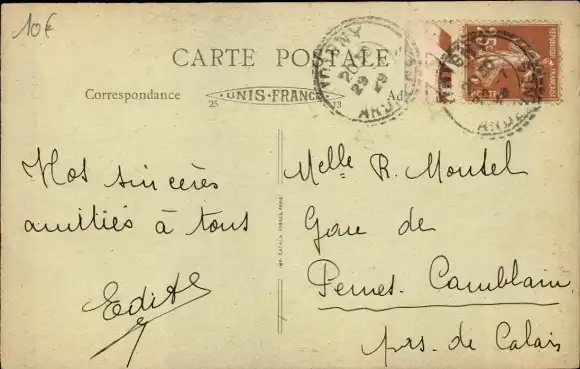 10€
CARTE POSTALE
Correspondance
UNIS-FRANCE
25
13
Ad
REPUBLIQUE FRANÇAISE
POSTES
Nos sincères
amitiés à tous
Edith
Melle R. Moutel
Gare de
Pernes-Camblain
pas-de-Calais